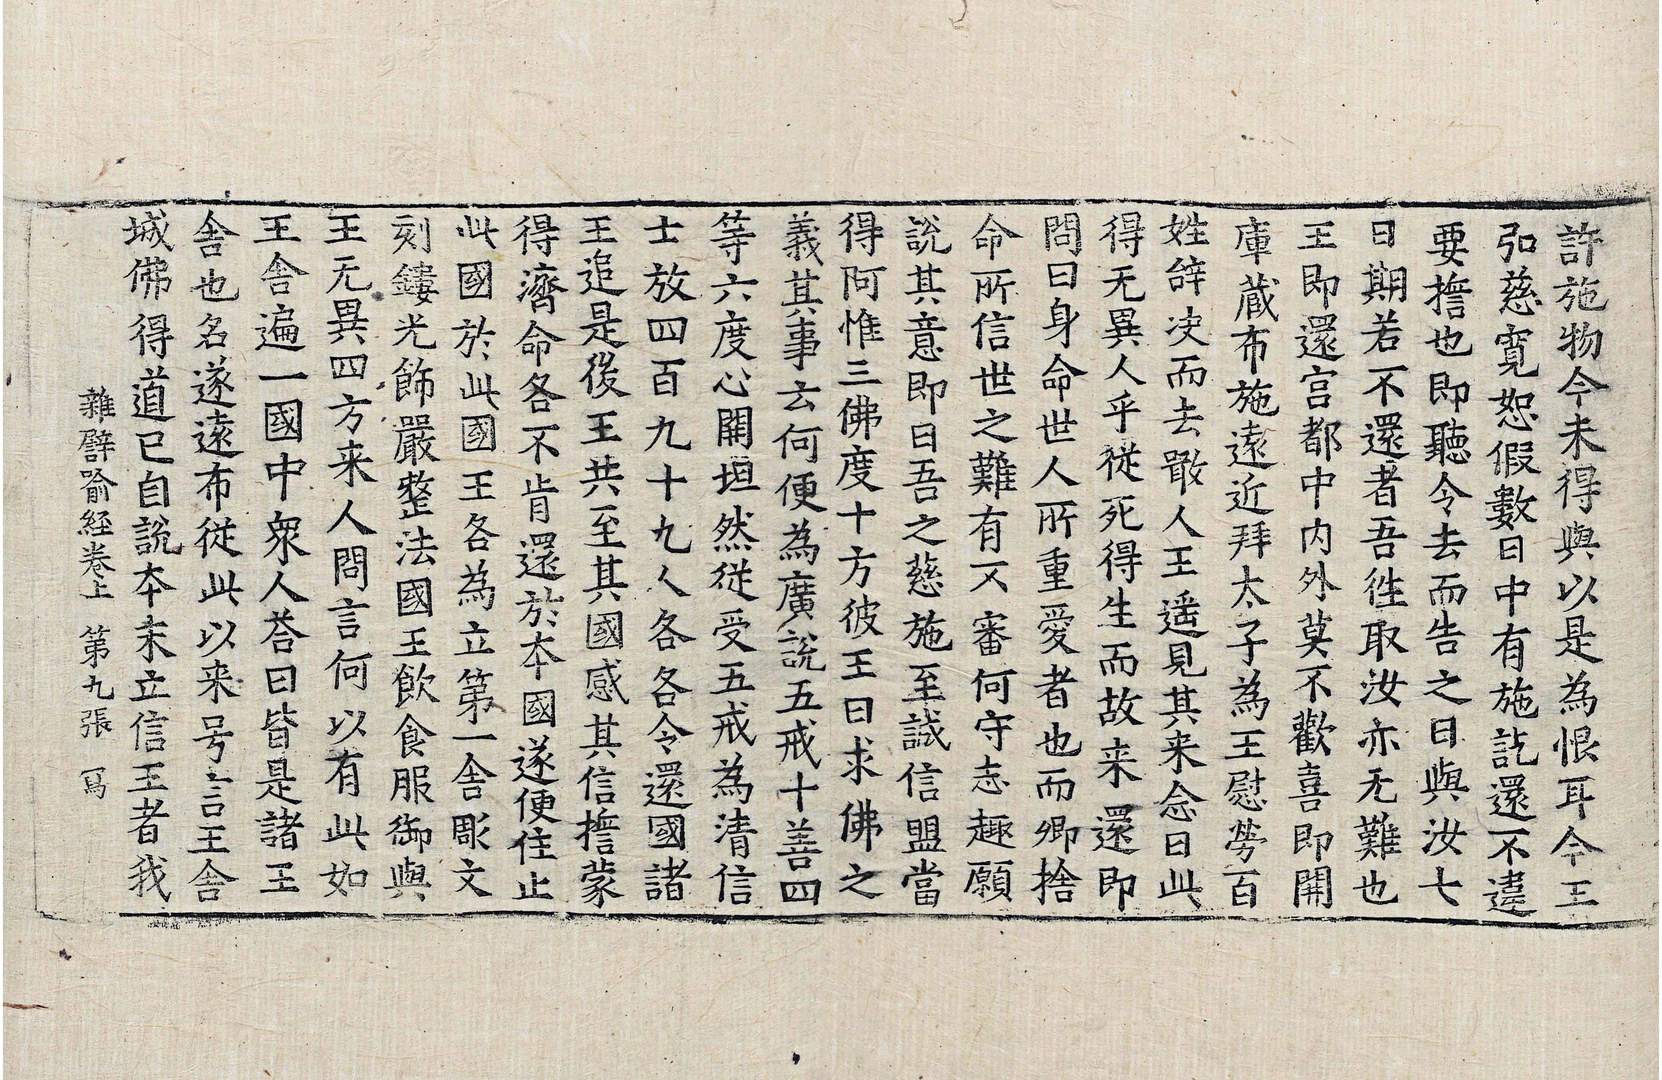 許施物今未得與以是為恨耳今王
弘慈寬恕假數日中有施訖還不違
要擔也即聽令去而告之曰與汝七
日期若不還者吾徃取汝亦无難也
王即還宫都中内外莫不歡喜即開
庫藏布施遠近拜太子為王慰勞百
姓辝决而去噉人王遥見其来念曰此
得无異人乎從死得生而故来還即
問曰身命世人所重愛者也而卿捨
命所信世之難有不審何守志趣願
說其意即曰吾之慈施至誠信盟當
得阿惟三佛度十方彼王曰求佛之
義其事云何便為廣說五戒十善四
等六度心開垣然從受五戒為清信
士放四百九十九人各各令還國諸
王追是後王共至其國感其信擔蒙
得濟命各不肯還於本國遂便住止
此國於此國王各為立第一舍彫文
刻鏤光飾嚴整法國王飲食服御與
王无異四方来人問言何以有此如
王舍遍一國中衆人荅曰皆是諸王
舍也名遂遠布從此以来号言王舍
城佛得道已自說本末立信王者我
雜譬喻經卷上 第九張 寫